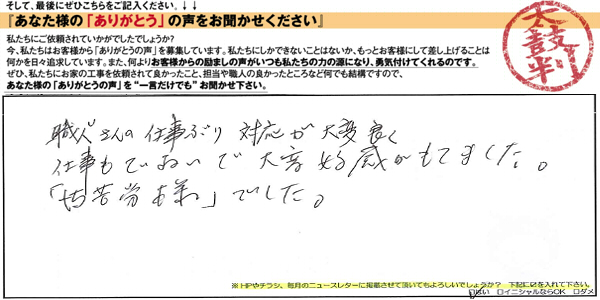 そして、最後にぜひこちらをご記入ください。↓↓
『あなた様の「ありがとう」の声をお聞かせください』
私たちにご依頼されていかがでしたでしょうか?
今、私たちはお客様から「ありがとうの声」を募集しています。私たちにしかできないことはないか、もっとお客様にして差し上げることは
何かを日々追求しています。また、何よりお客様からの励ましの声がいつも私たちの力の源になり、勇気付けてくれるのです。
ぜひ、私たちにお家の工事を依頼されて良かったこと、担当や職人の良かったところなど何でも結構ですので、
あなた様の「ありがとうの声」を“一言だけでも”お聞かせ下さい。
太鼓判
職人さんの仕事ぶり対応が大変良く
仕事もていねいで大変好感がもてました。
「ご苦労様」でした。
※HPやチラシ、毎月のニュースレターに掲載させて頂いてもよろしいでしょうか? 下記に☑を入れて下さい。
はい □イニシャルならOK □ダメ